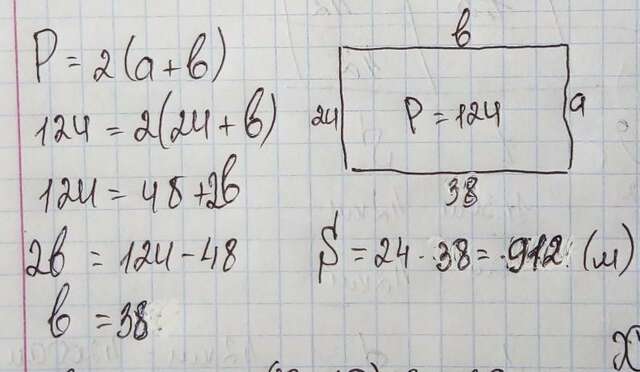 P = 2(a + b)
124 = 2(24 + b)
124 = 48 + 2b
2b = 124 - 48
b = 38
b
24
P = 124
a
38
S = 24 · 38 = 912 (м)